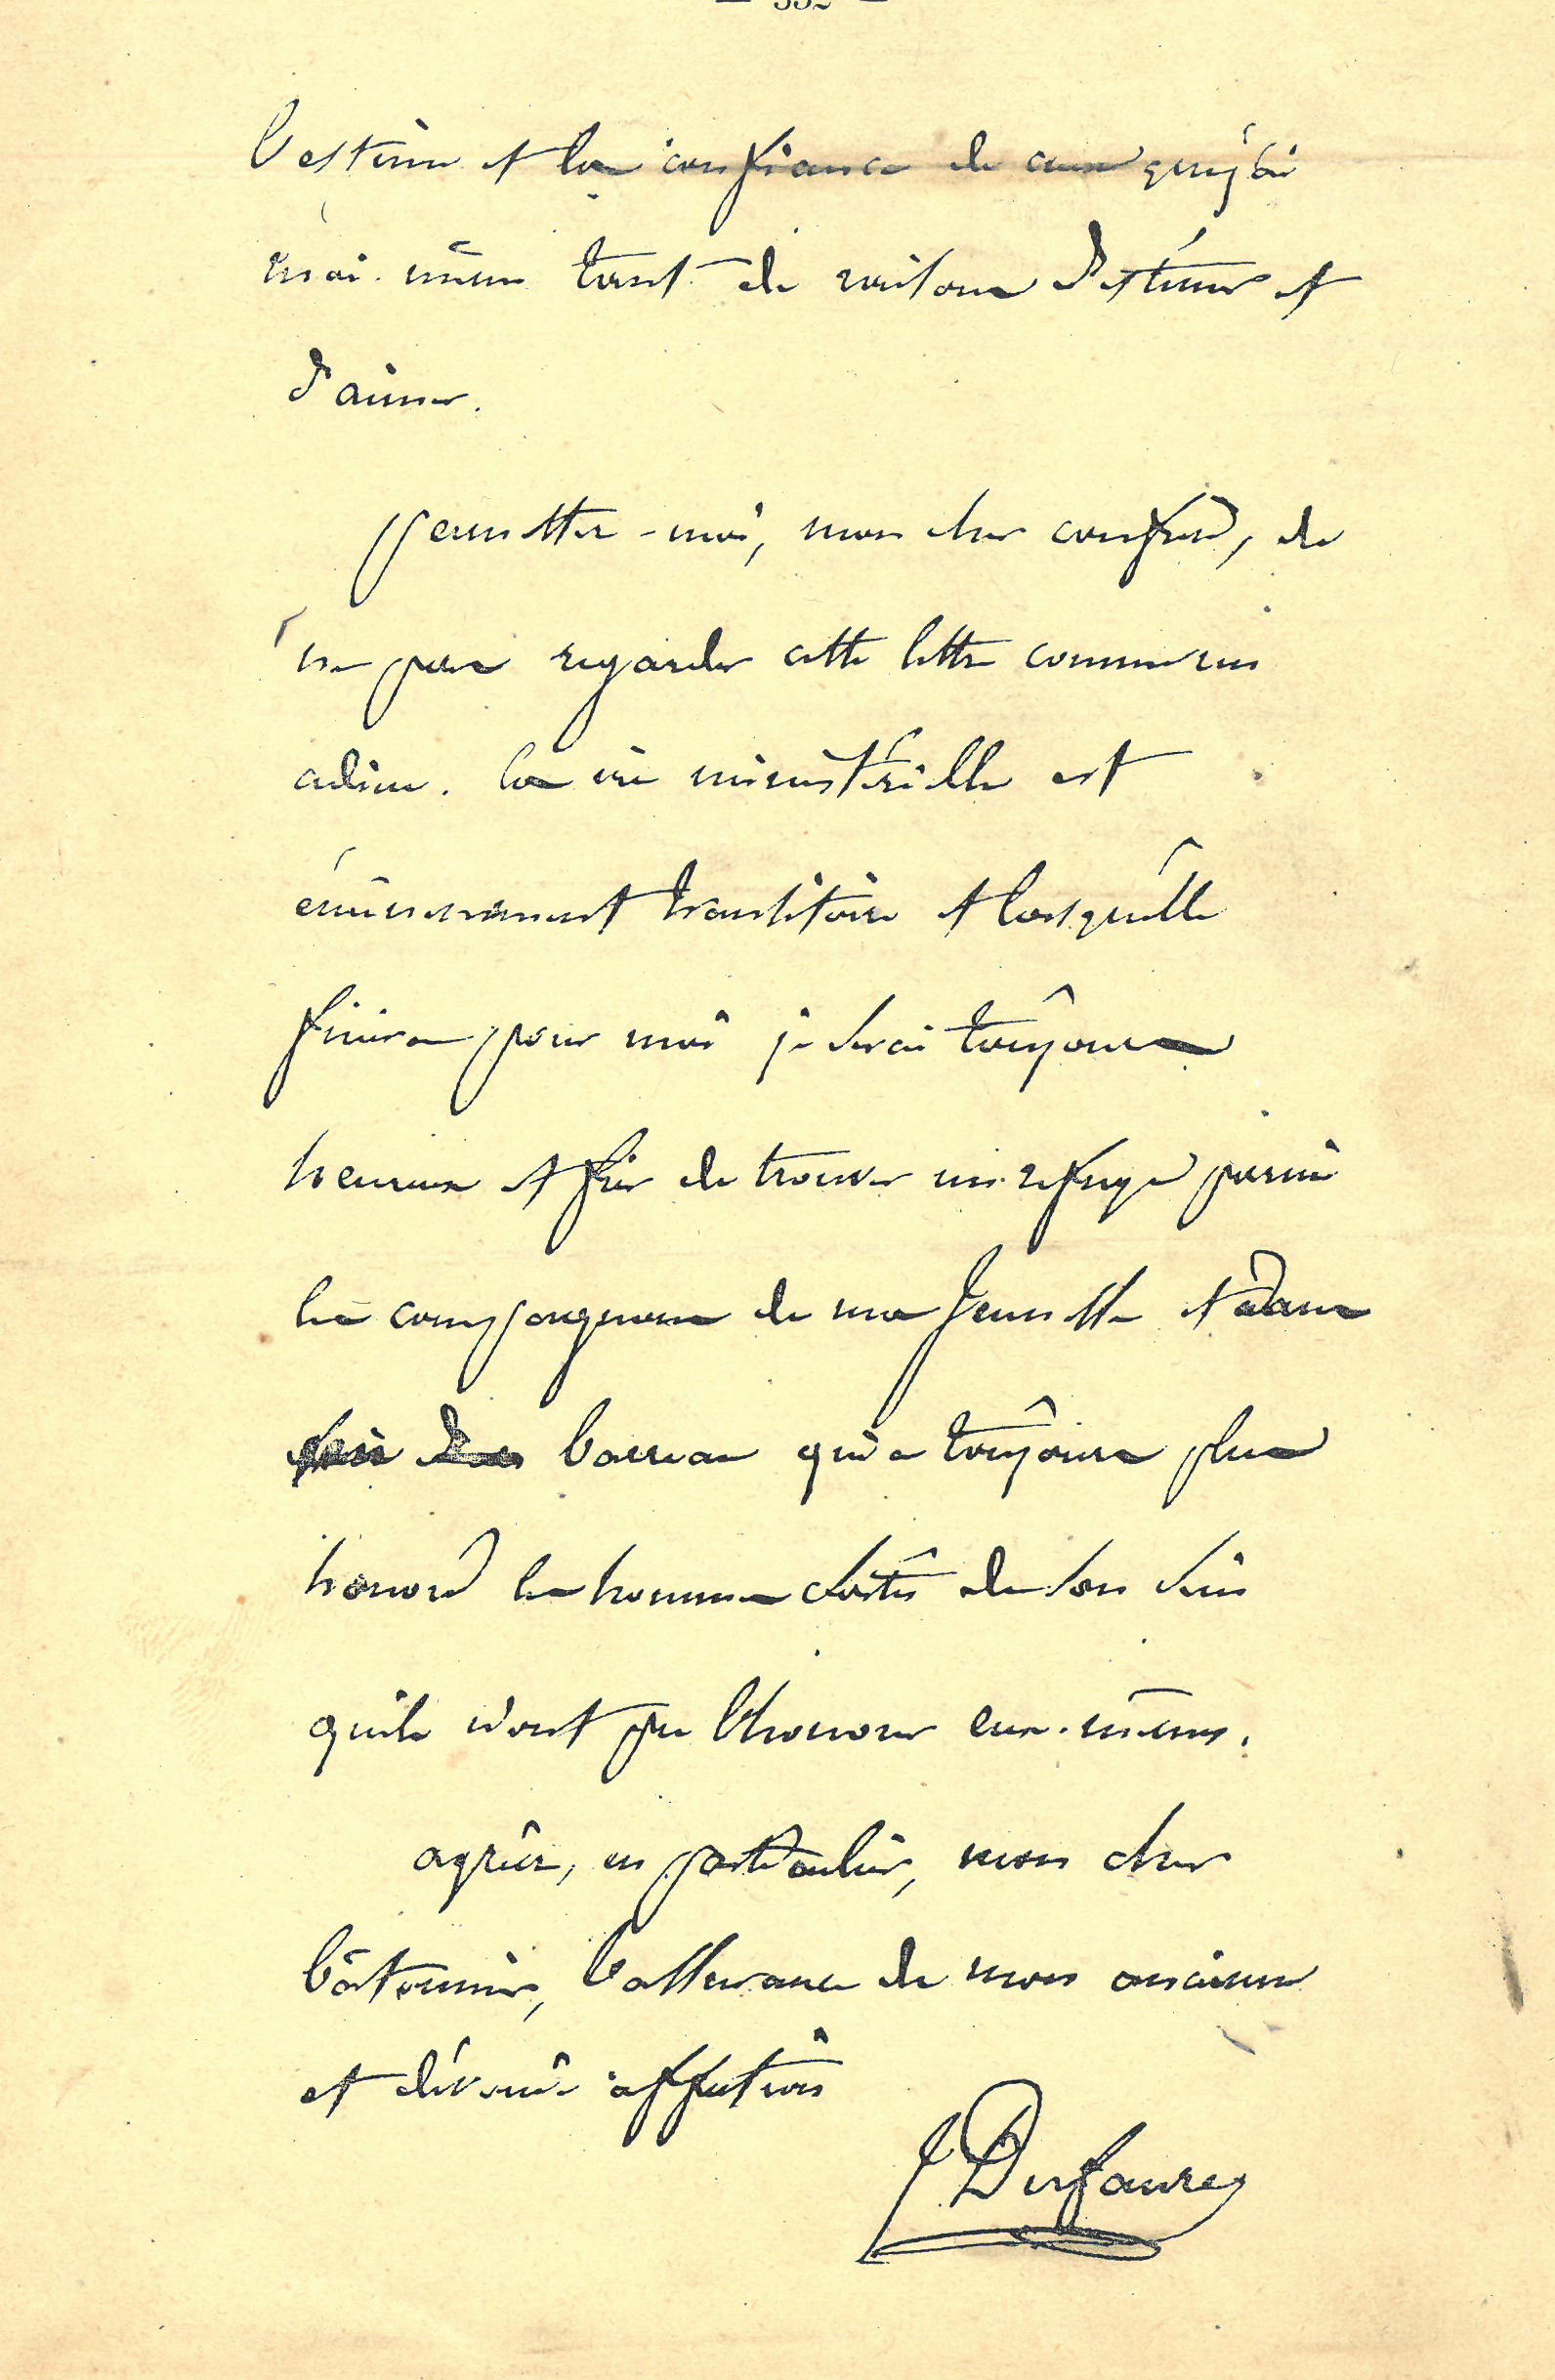 — 332 —
l'estime et la confiance de ceux que j'ai
moi-même tant de raisons d'estimer et
d'aimer.
permettez-moi, mon cher confrère, de
ne pas regarder cette lettre comme un
adieu. la vie ministérielle est
éminemment transitoire et lorsqu'elle
finira pour moi je serai toujours
heureux et fier de trouver un refuge parmi
les compagnons de ma jeunesse et dans
barreau qui a toujours plus
honoré les hommes sortis de son sein
qu'ils n'ont pu l'honorer eux-mêmes.
agréez, en particulier, mon cher
bâtonnier, l'assurance de mon ancienne
et dévouée affection
J Dufaure